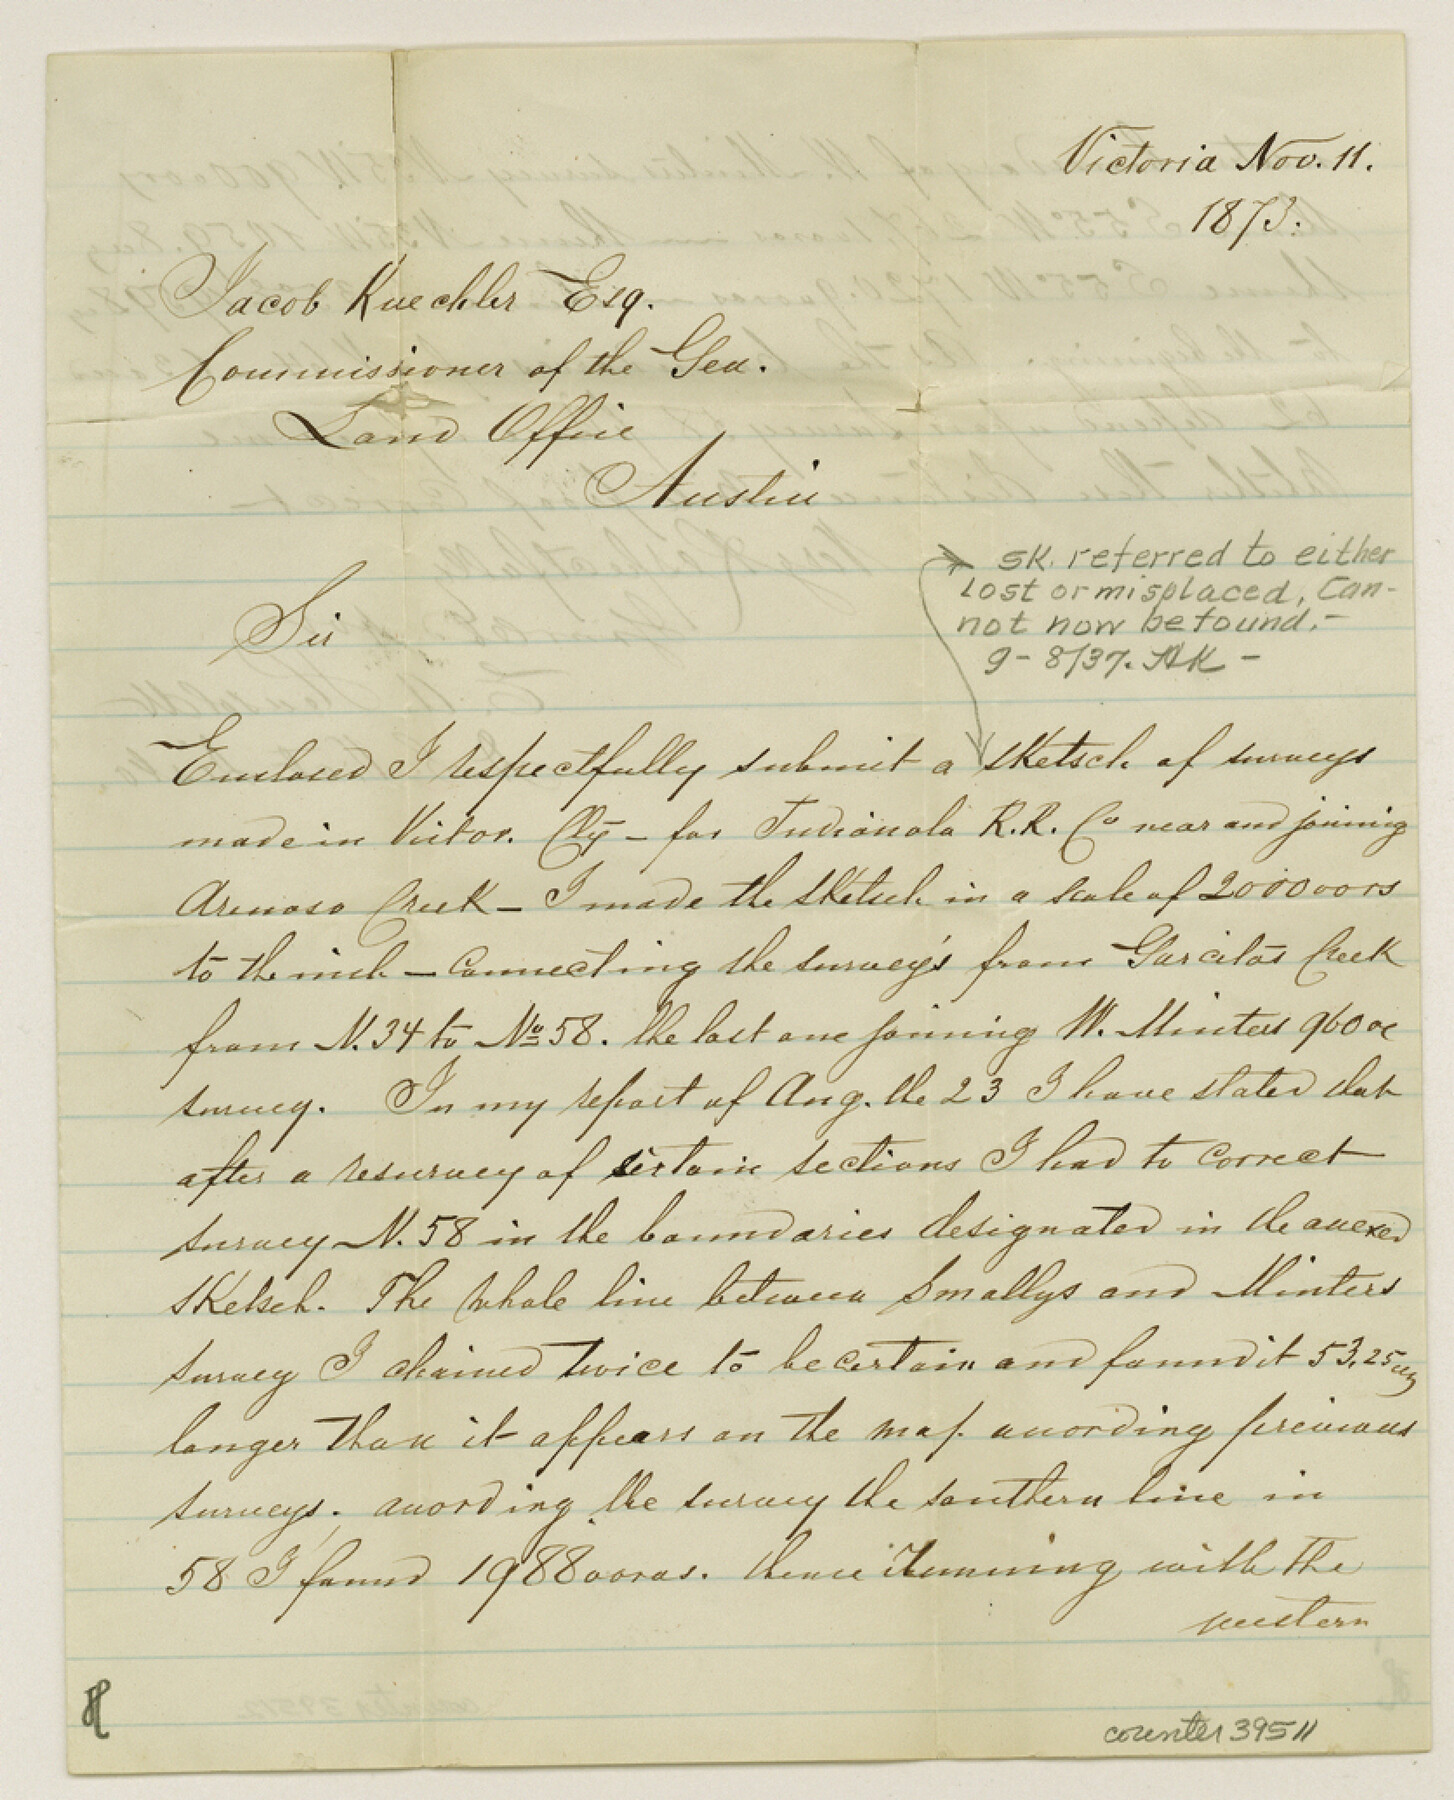 Victoria Nov. 11.
1873.
Jacob Kuechler Esq.
Commissioner of the Gen.
Land Office
Austin
Sir
sk. referred to either
lost or misplaced, Can-
not now be found.-
9-8/37. AK -
Enclosed I respectfully submit a sketsch of surveys
made in Victor. Cty - for Indianola R.R. Co near and joining
Arenoso Creek - I made the sketsch in a scale of 2000 vars
to the inch - connecting the survey's from Garcitas Creek
from N. 34 to No 58. the last one joining W. Minters 960 ac
survey. In my report of Aug. the 23 I have stated that
after a resurvey of certain sections I had to correct
survey N. 58 in the boundaries designated in the anexed
sketsch. The whole line between Smallys and Minters
survey I chained twice to be certain and found it 53,25
longer than it appears on the map according previous
surveys. according the survey the southern line in
58 I found 1988 varas. thence running with the
western
counter 39511